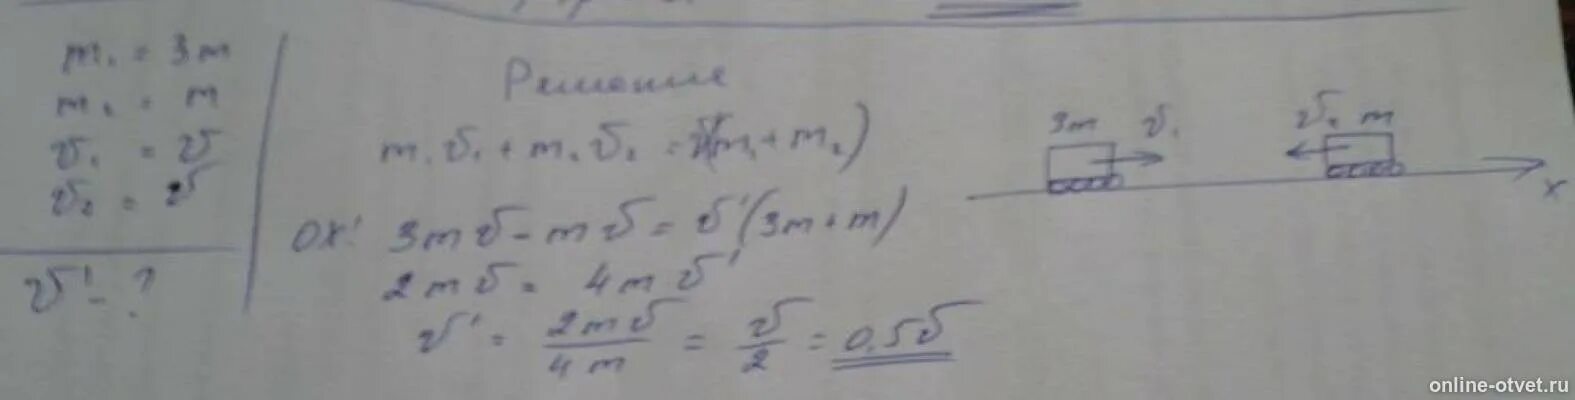 m₁ = 3m
m₂ = m
v₁ = v
v₂ = v
v' - ?
Решение
m₁v₁ + m₂v₂ = v'(m₁ + m₂)
OX: 3mv - mv = v'(3m + m)
2mv = 4mv'
v' = 2mv/4m = v/2 = 0,5v
3m v₁ v₂ m
x
online-otvet.ru